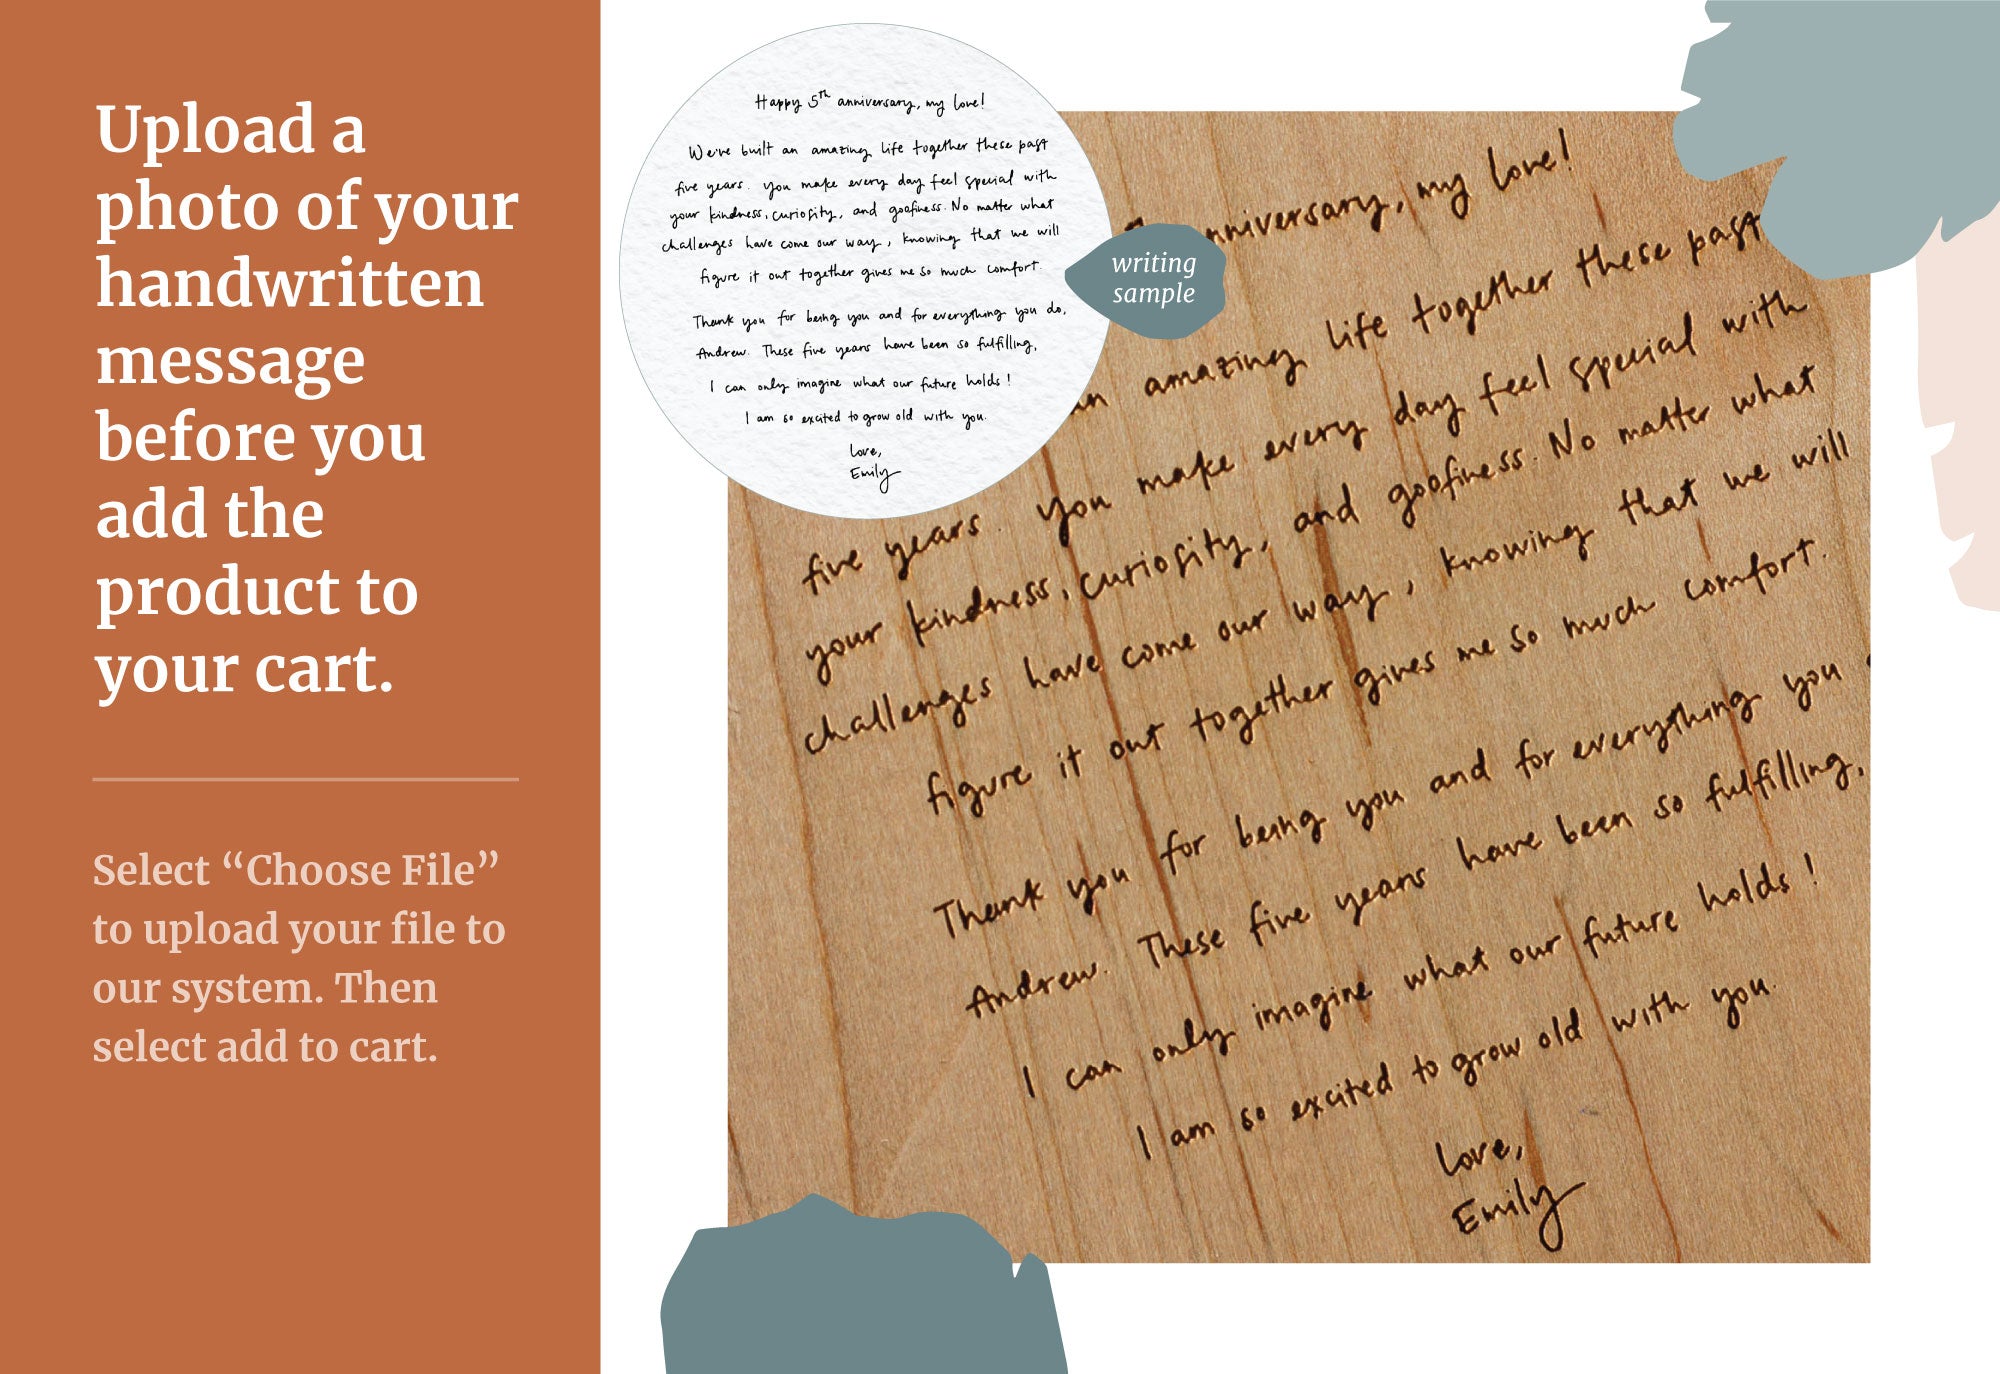 Upload a
photo of your
handwritten
message
before you
add the
product to
your cart.
Select “Choose File”
to upload your file to
our system. Then
select add to cart.
Happy 5th anniversary, my love!
We've built an amazing life together these past
five years. You make every day feel special with
your kindness, curiosity, and goofiness. No matter what
challenges have come our way, knowing that we will
figure it out together gives me so much comfort.
Thank you for being you and for everything you do,
Andrew. These five years have been so fulfilling,
I can only imagine what our future holds!
I am so excited to grow old with you.
Love,
Emily
writing
sample
anniversary, my love!
an amazing life together these past
five years. You make every day feel special with
your kindness, curiosity, and goofiness. No matter what
challenges have come our way, knowing that we will
figure it out together gives me so much comfort.
Thank you for being you and for everything you
Andrew. These five years have been so fulfilling,
I can only imagine what our future holds!
I am so excited to grow old with you.
Love,
Emily